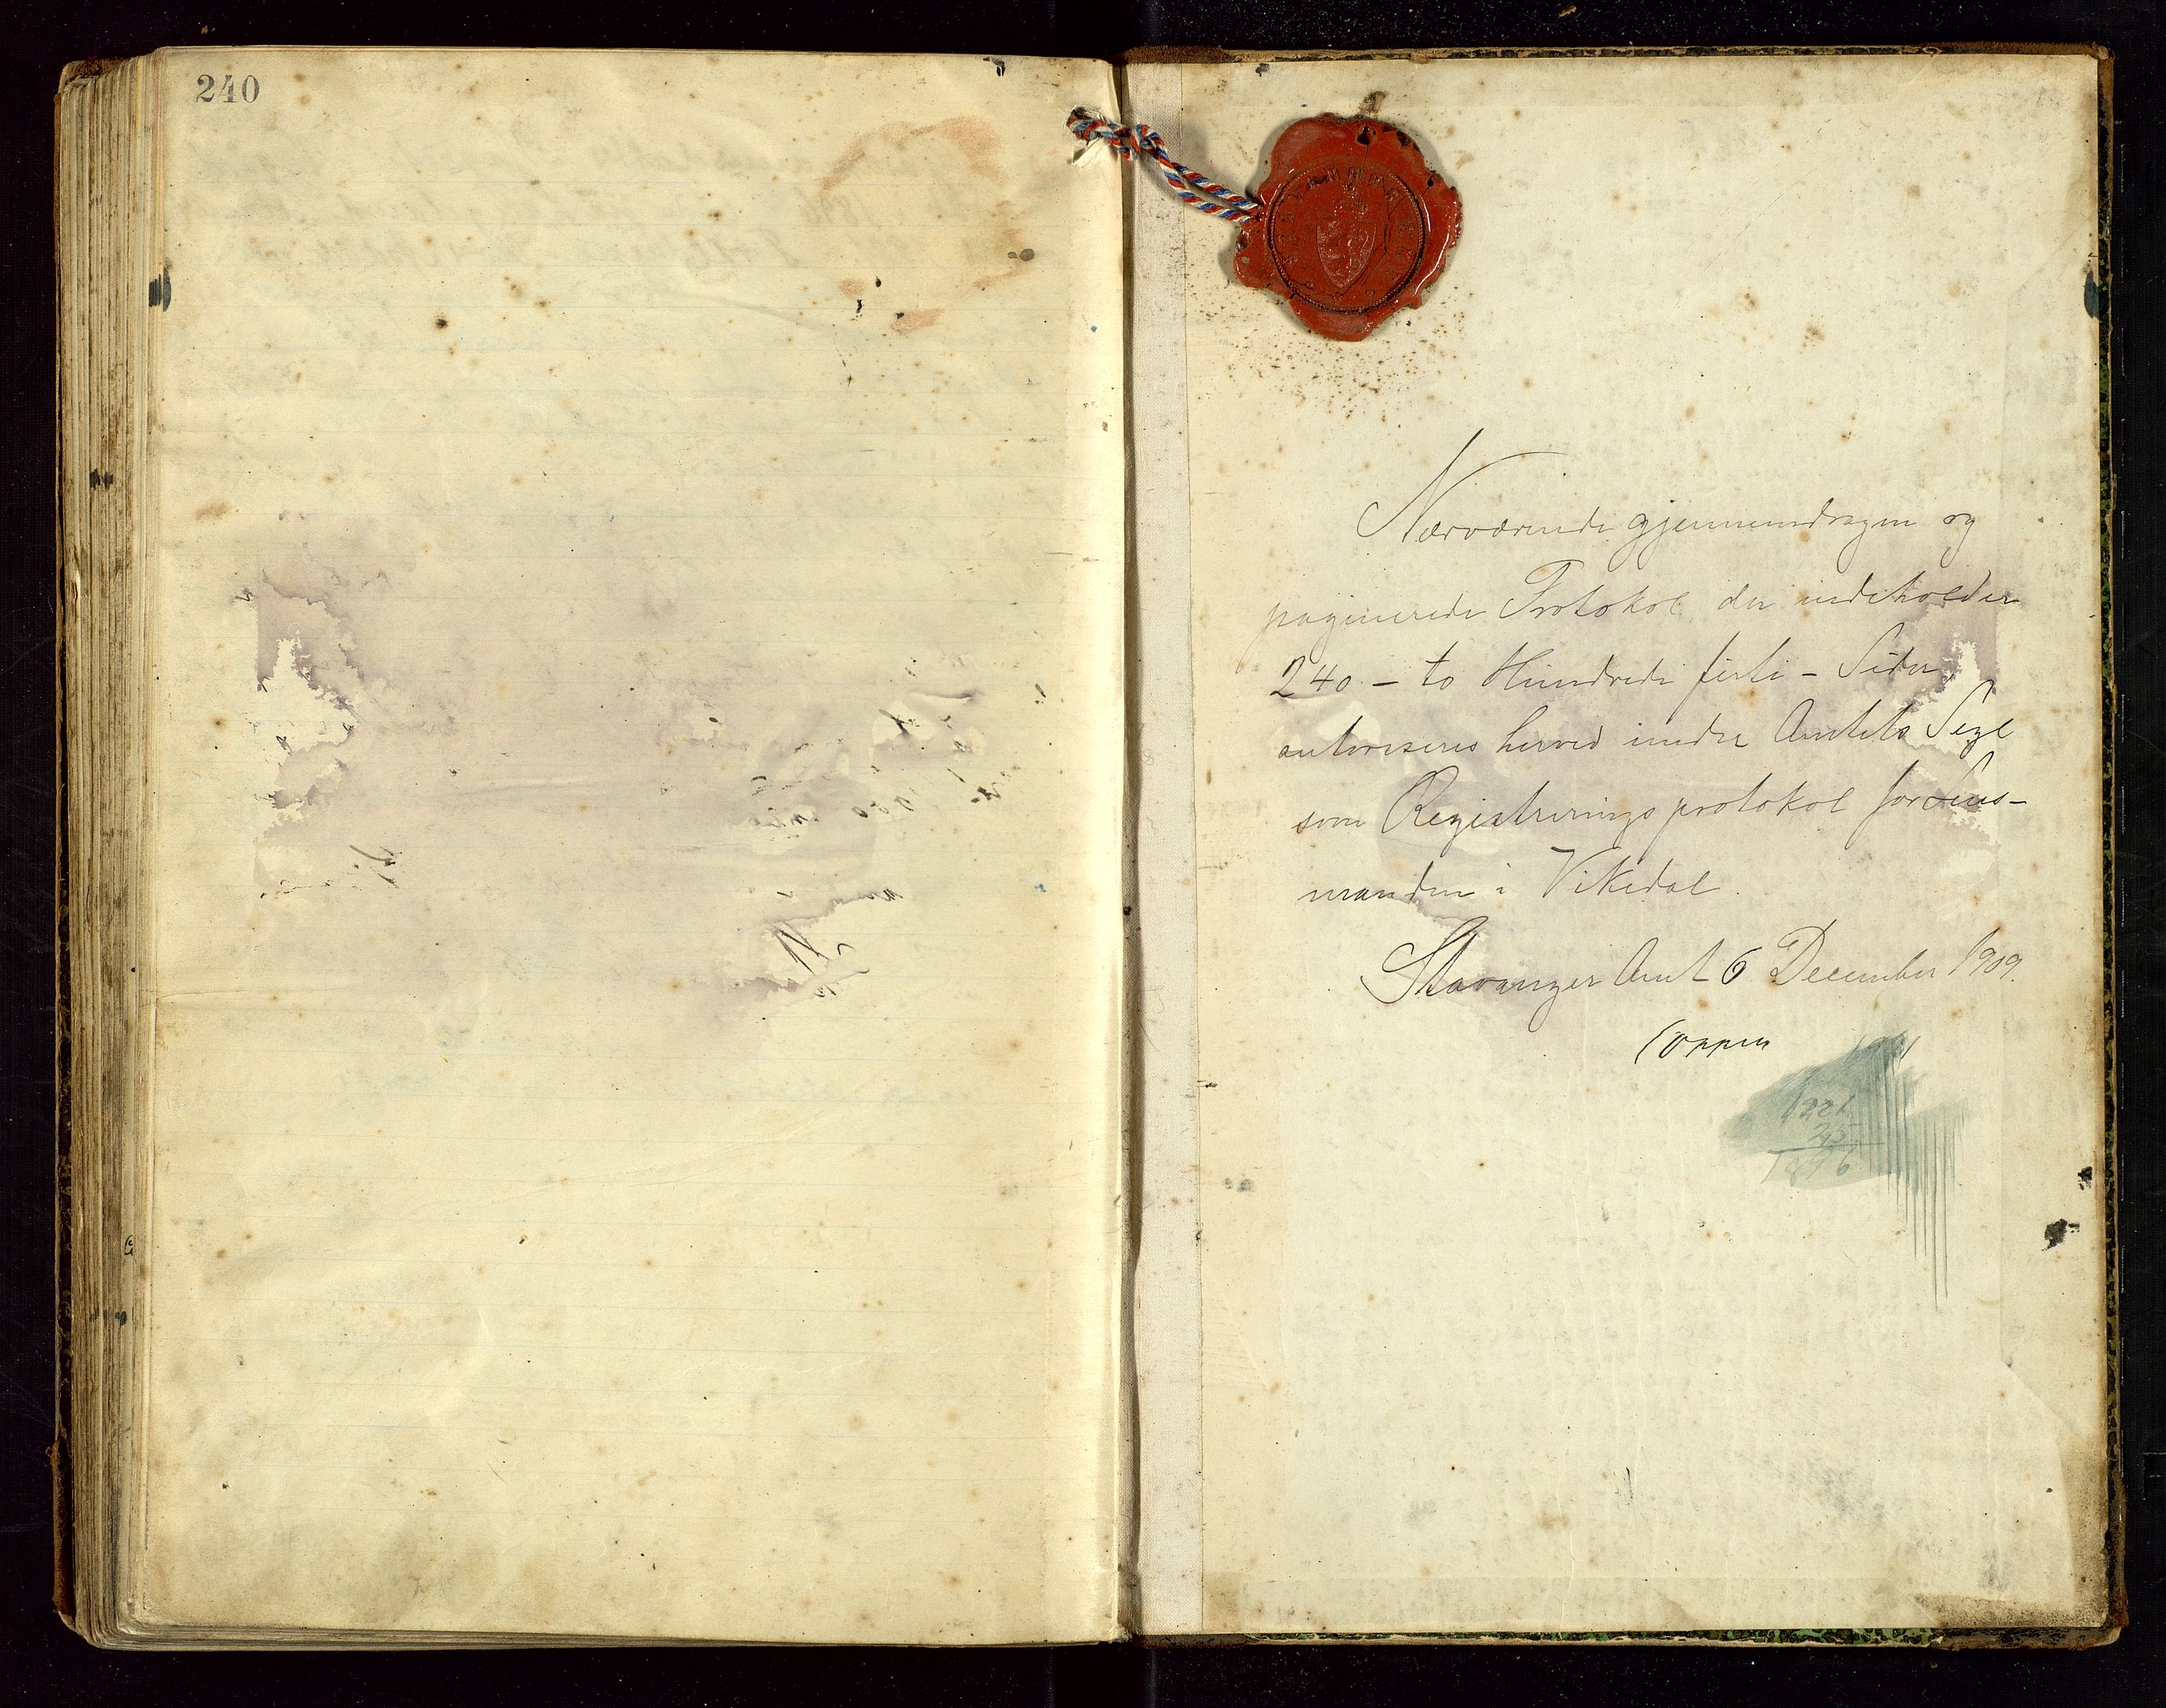 240
Nærværende gjennemdragen og
paginerede Protokol der indeholder
240 - to Hundrede firti - Sider,
autoriseres herved under Amtets Segl
som Registreringsprotokol for Lens-
manden i Vikedal.
Stavanger Amt 6 December 1909.
1221
25